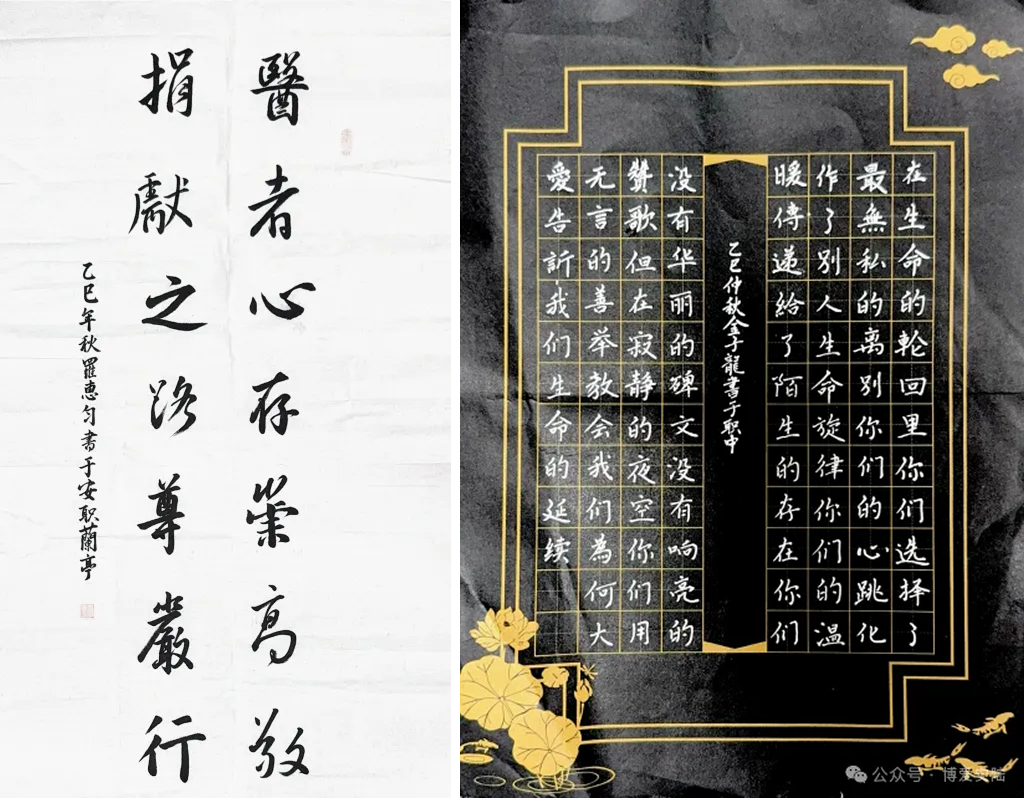 醫者心存崇高敬
捐獻之路尊嚴行
乙巳年秋羅惠匀書于安职蘭亭
在生命的轮回里你们选择了
最無私的离别你们的心跳化
作了别人生命旋律你们的温
暖傳递給了陌生的存在你们
乙巳仲秋金子龍書于职中
没有华丽的碑文没有响亮的
贊歌但在寂静的夜空你们用
无言的善举教会我们為何大
愛告訴我们生命的延续
公众号·博爱安陆